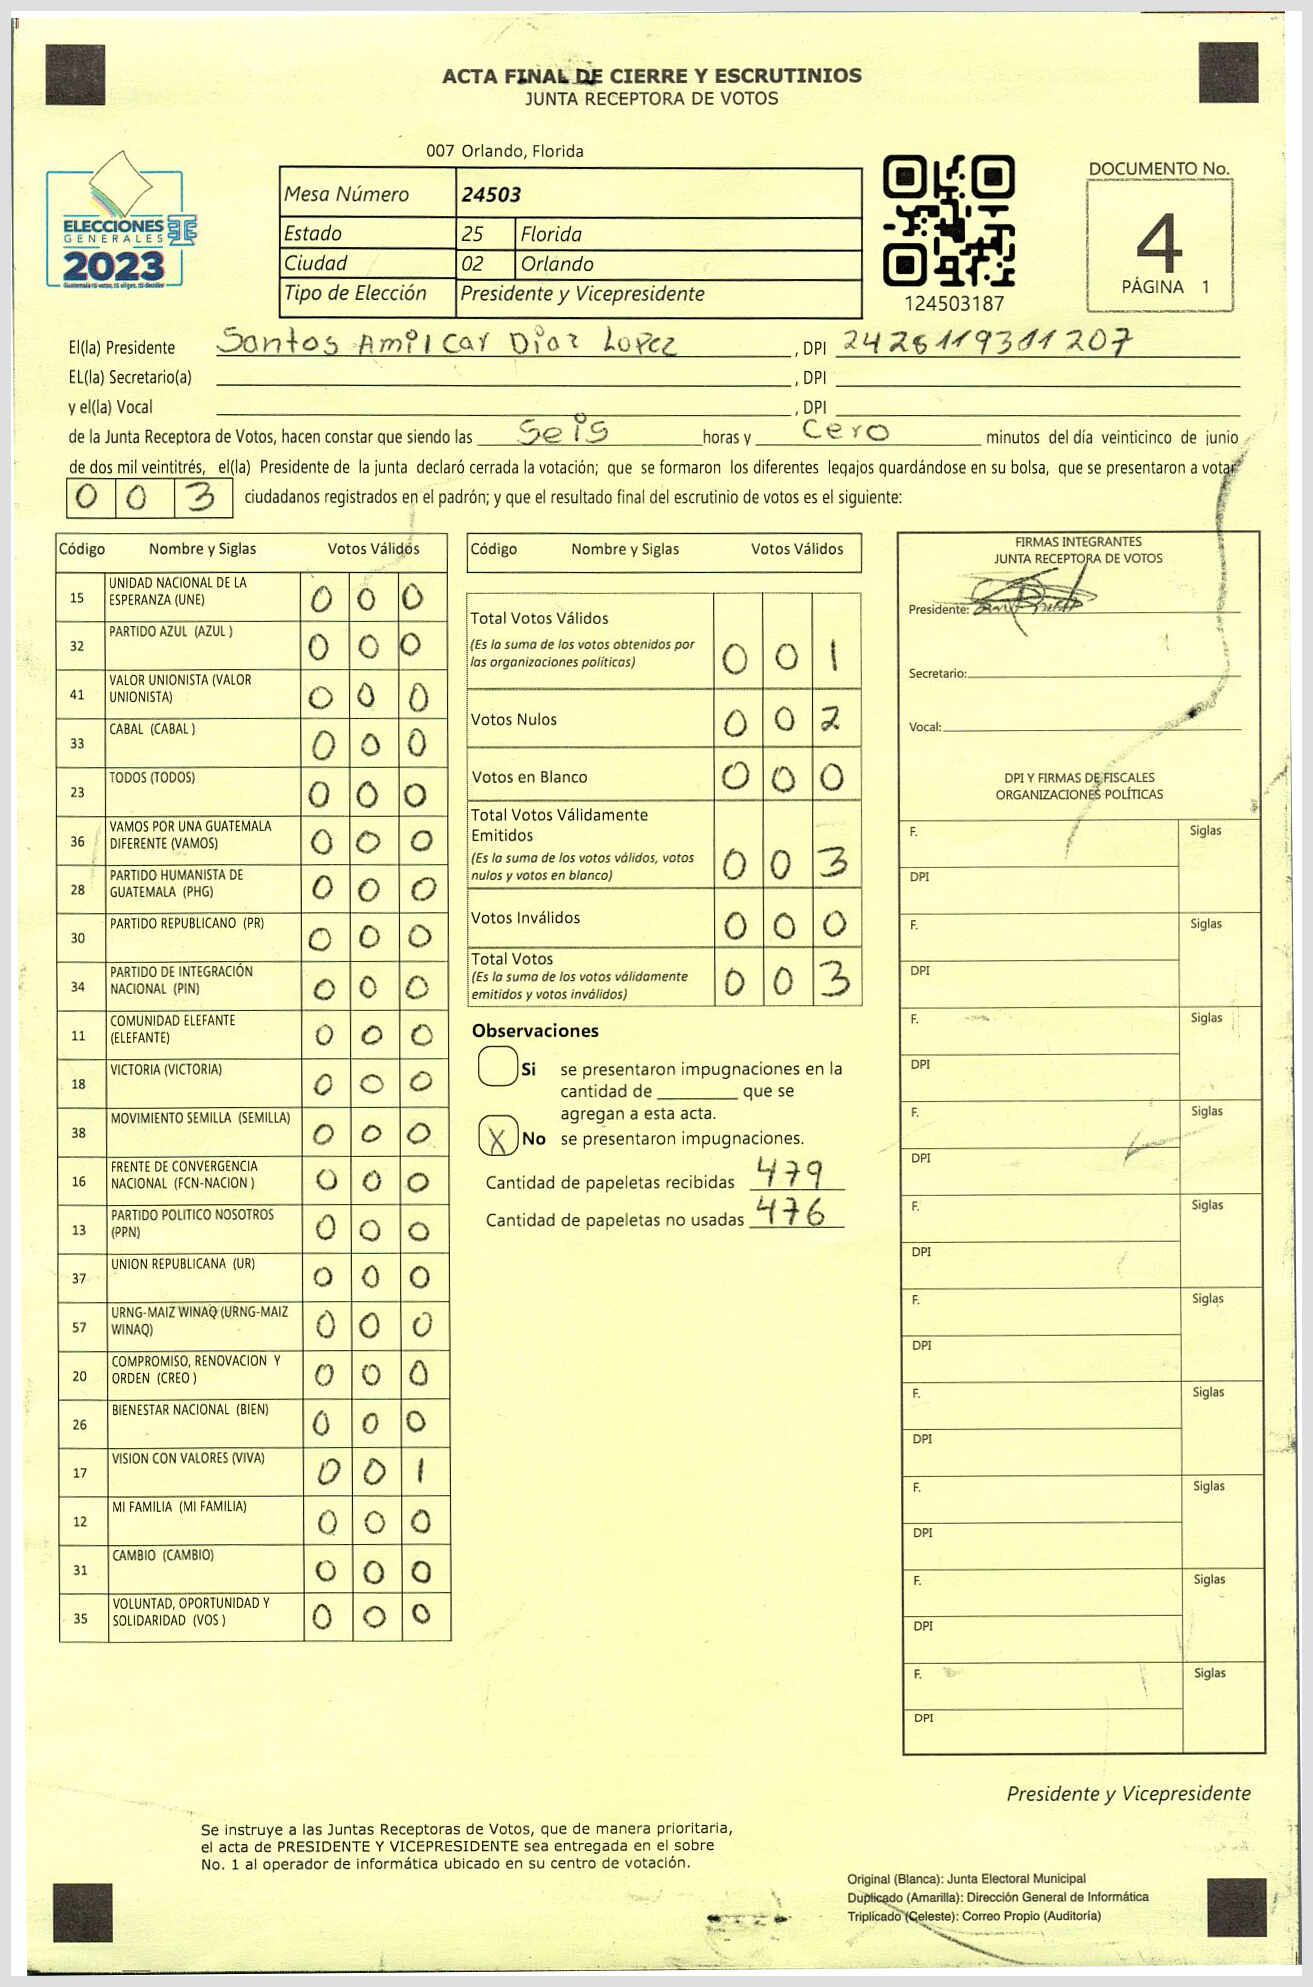 ACTA FINAL DE CIERRE Y ESCRUTINIOS
JUNTA RECEPTORA DE VOTOS
007 Orlando, Florida
ELECCIONES
GENERALES
2023
Mesa Número 24503
Estado 25 Florida
Ciudad 02 Orlando
Tipo de Elección Presidente y Vicepresidente
124503187
DOCUMENTO No.
4
PÁGINA 1
El(la) Presidente Santos Amilcar Diaz Lopez, DPI 2428119311207
EL(la) Secretario(a) , DPI
y el(la) Vocal , DPI
de la Junta Receptora de Votos, hacen constar que siendo las Seis horas y Cero minutos del día veinticinco de junio
de dos mil veintitrés, el(la) Presidente de la junta declaró cerrada la votación; que se formaron los diferentes legajos guardándose en su bolsa, que se presentaron a votar
0 0 3 ciudadanos registrados en el padrón; y que el resultado final del escrutinio de votos es el siguiente:
Código Nombre y Siglas Votos Válidos
15 UNIDAD NACIONAL DE LA ESPERANZA (UNE) 0 0 0
32 PARTIDO AZUL (AZUL ) 0 0 0
41 VALOR UNIONISTA (VALOR UNIONISTA) 0 0 0
33 CABAL (CABAL ) 0 0 0
23 TODOS (TODOS) 0 0 0
36 VAMOS POR UNA GUATEMALA DIFERENTE (VAMOS) 0 0 0
28 PARTIDO HUMANISTA DE GUATEMALA (PHG) 0 0 0
30 PARTIDO REPUBLICANO (PR) 0 0 0
34 PARTIDO DE INTEGRACIÓN NACIONAL (PIN) 0 0 0
11 COMUNIDAD ELEFANTE (ELEFANTE) 0 0 0
18 VICTORIA (VICTORIA) 0 0 0
38 MOVIMIENTO SEMILLA (SEMILLA) 0 0 0
16 FRENTE DE CONVERGENCIA NACIONAL (FCN-NACION ) 0 0 0
13 PARTIDO POLITICO NOSOTROS (PPN) 0 0 0
37 UNION REPUBLICANA (UR) 0 0 0
57 URNG-MAIZ WINAQ (URNG-MAIZ WINAQ) 0 0 0
20 COMPROMISO, RENOVACION Y ORDEN (CREO ) 0 0 0
26 BIENESTAR NACIONAL (BIEN) 0 0 0
17 VISION CON VALORES (VIVA) 0 0 1
12 MI FAMILIA (MI FAMILIA) 0 0 0
31 CAMBIO (CAMBIO) 0 0 0
35 VOLUNTAD, OPORTUNIDAD Y SOLIDARIDAD (VOS ) 0 0 0
Código Nombre y Siglas Votos Válidos
Total Votos Válidos 0 0 1
(Es la suma de los votos obtenidos por
las organizaciones políticas)
Votos Nulos 0 0 2
Votos en Blanco 0 0 0
Total Votos Válidamente
Emitidos 0 0 3
(Es la suma de los votos válidos, votos
nulos y votos en blanco)
Votos Inválidos 0 0 0
Total Votos 0 0 3
(Es la suma de los votos válidamente
emitidos y votos inválidos)
Observaciones
Si se presentaron impugnaciones en la
cantidad de ________ que se
agregan a esta acta.
X No se presentaron impugnaciones.
Cantidad de papeletas recibidas 479
Cantidad de papeletas no usadas 476
FIRMAS INTEGRANTES
JUNTA RECEPTORA DE VOTOS
Presidente:
Secretario:
Vocal:
DPI Y FIRMAS DE FISCALES
ORGANIZACIONES POLÍTICAS
F. Siglas
DPI
F. Siglas
DPI
F. Siglas
DPI
F. Siglas
DPI
F. Siglas
DPI
F. Siglas
DPI
F. Siglas
DPI
F. Siglas
DPI
F. Siglas
DPI
F. Siglas
DPI
Presidente y Vicepresidente
Se instruye a las Juntas Receptoras de Votos, que de manera prioritaria,
el acta de PRESIDENTE Y VICEPRESIDENTE sea entregada en el sobre
No. 1 al operador de informática ubicado en su centro de votación.
Original (Blanca): Junta Electoral Municipal
Duplicado (Amarilla): Dirección General de Informática
Triplicado (Celeste): Correo Propio (Auditoría)